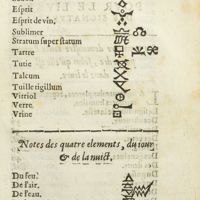 Esprit
Esprit de vin,
Sublimer
Stratum super stratum
Tartre
Tutie
Talcum
Tuille tigillum
Vitriol
Verre
Vrine
Notes des quatre elements, du iour
& de la nuict.
Du feu.
De l'air.
De l'eau.